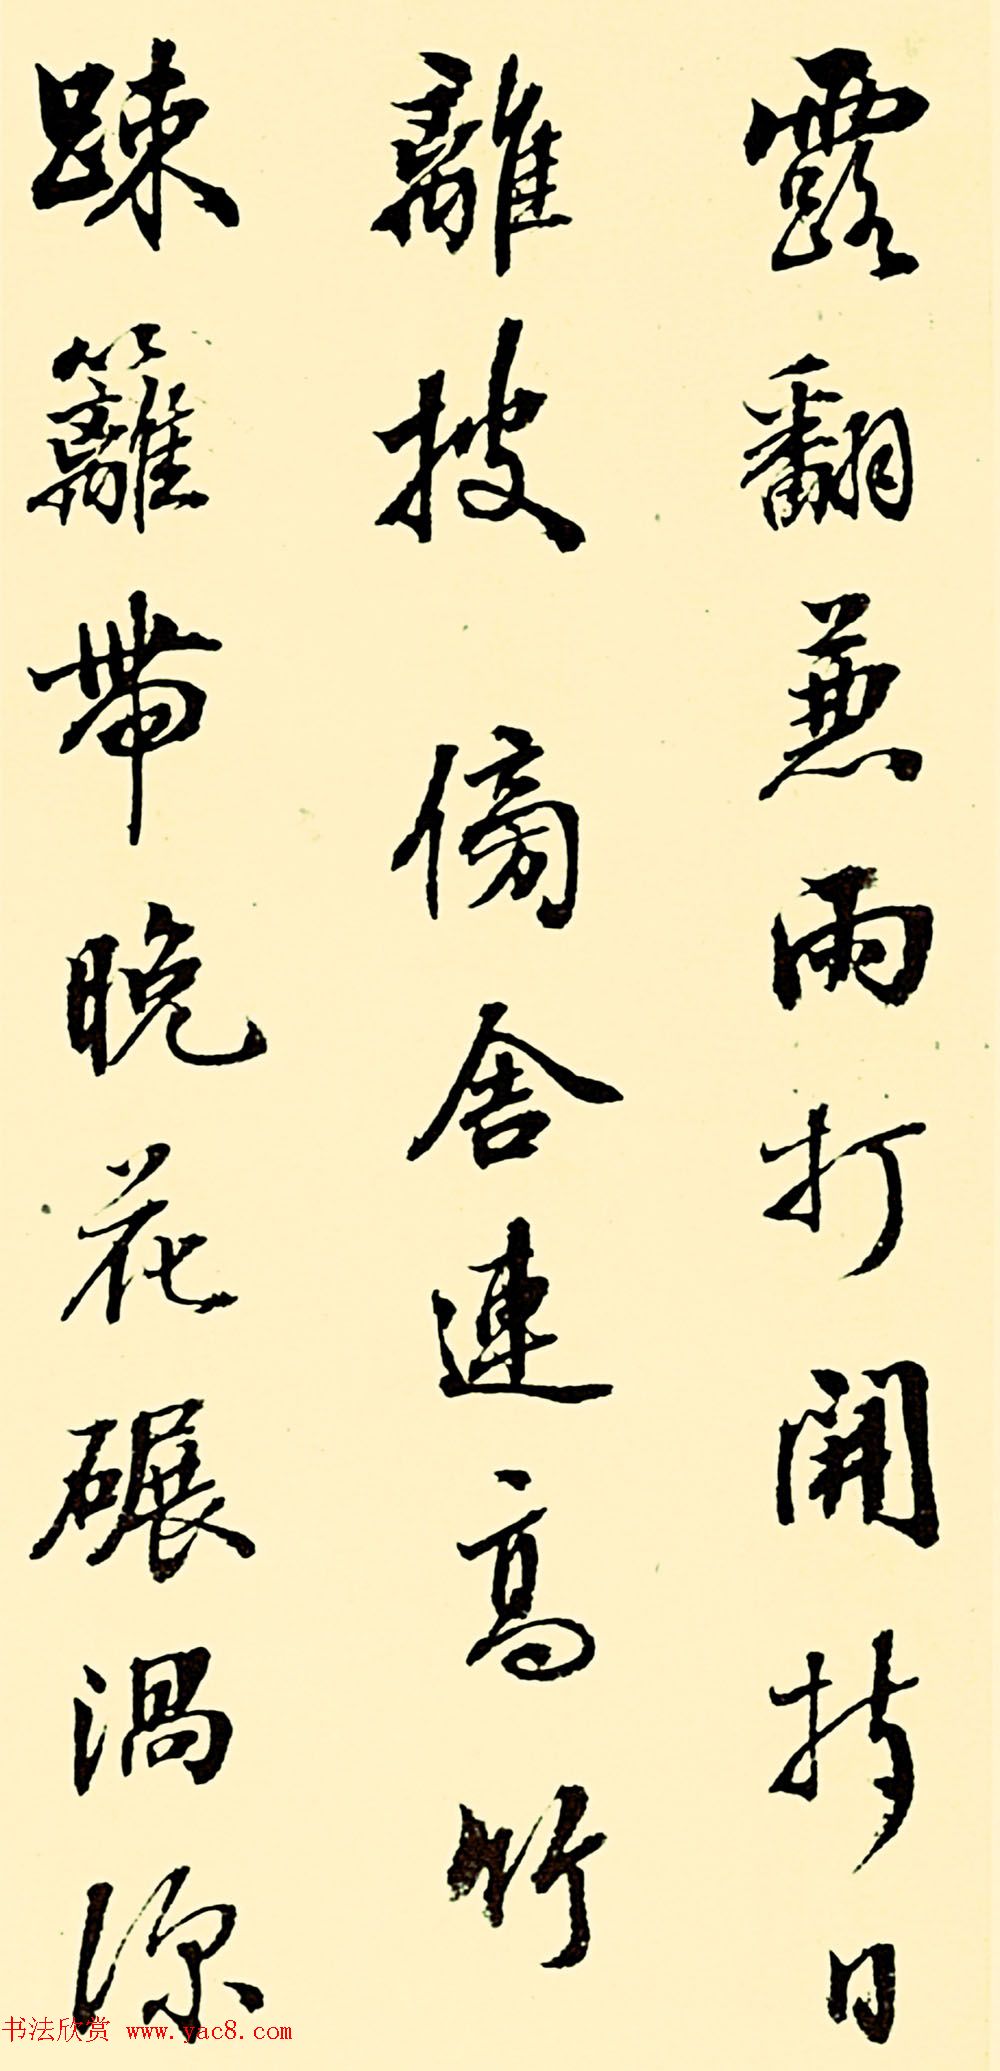 露翻兼雨打開拆日
離披傍舍連高竹
踈籬帶晚花碾渦深
书法欣赏 www.yac8.com